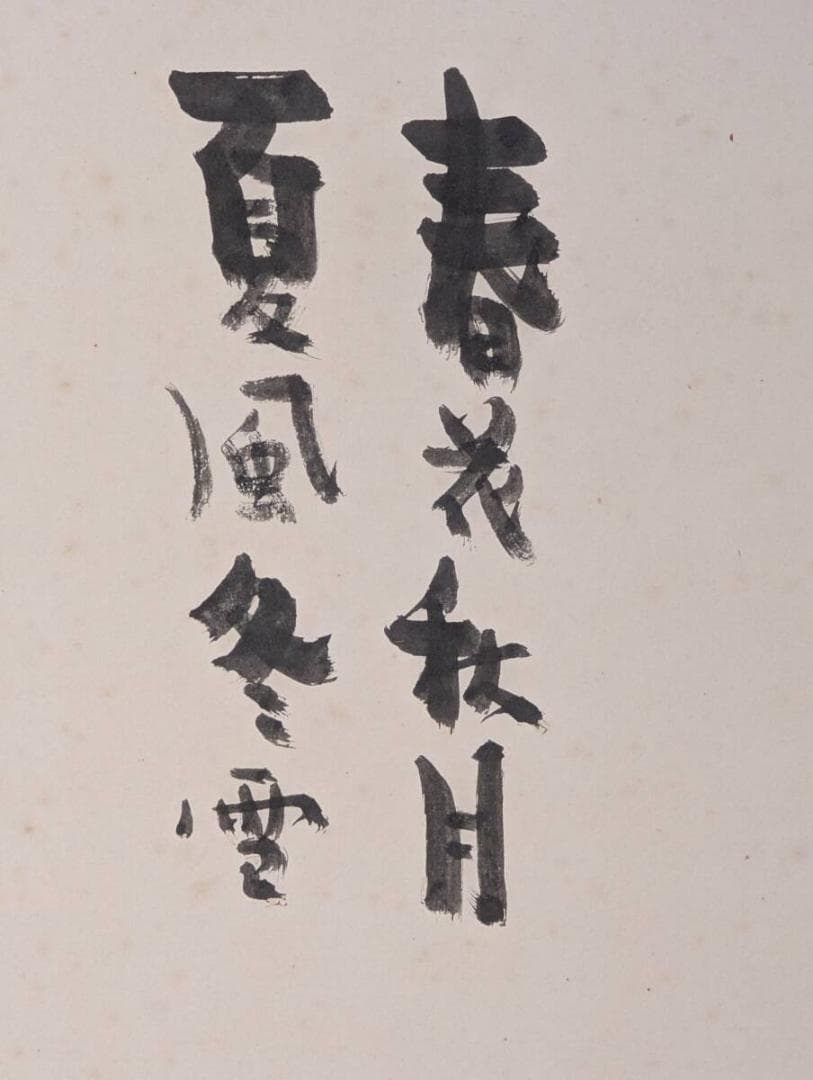 春花秋月
夏風冬雪